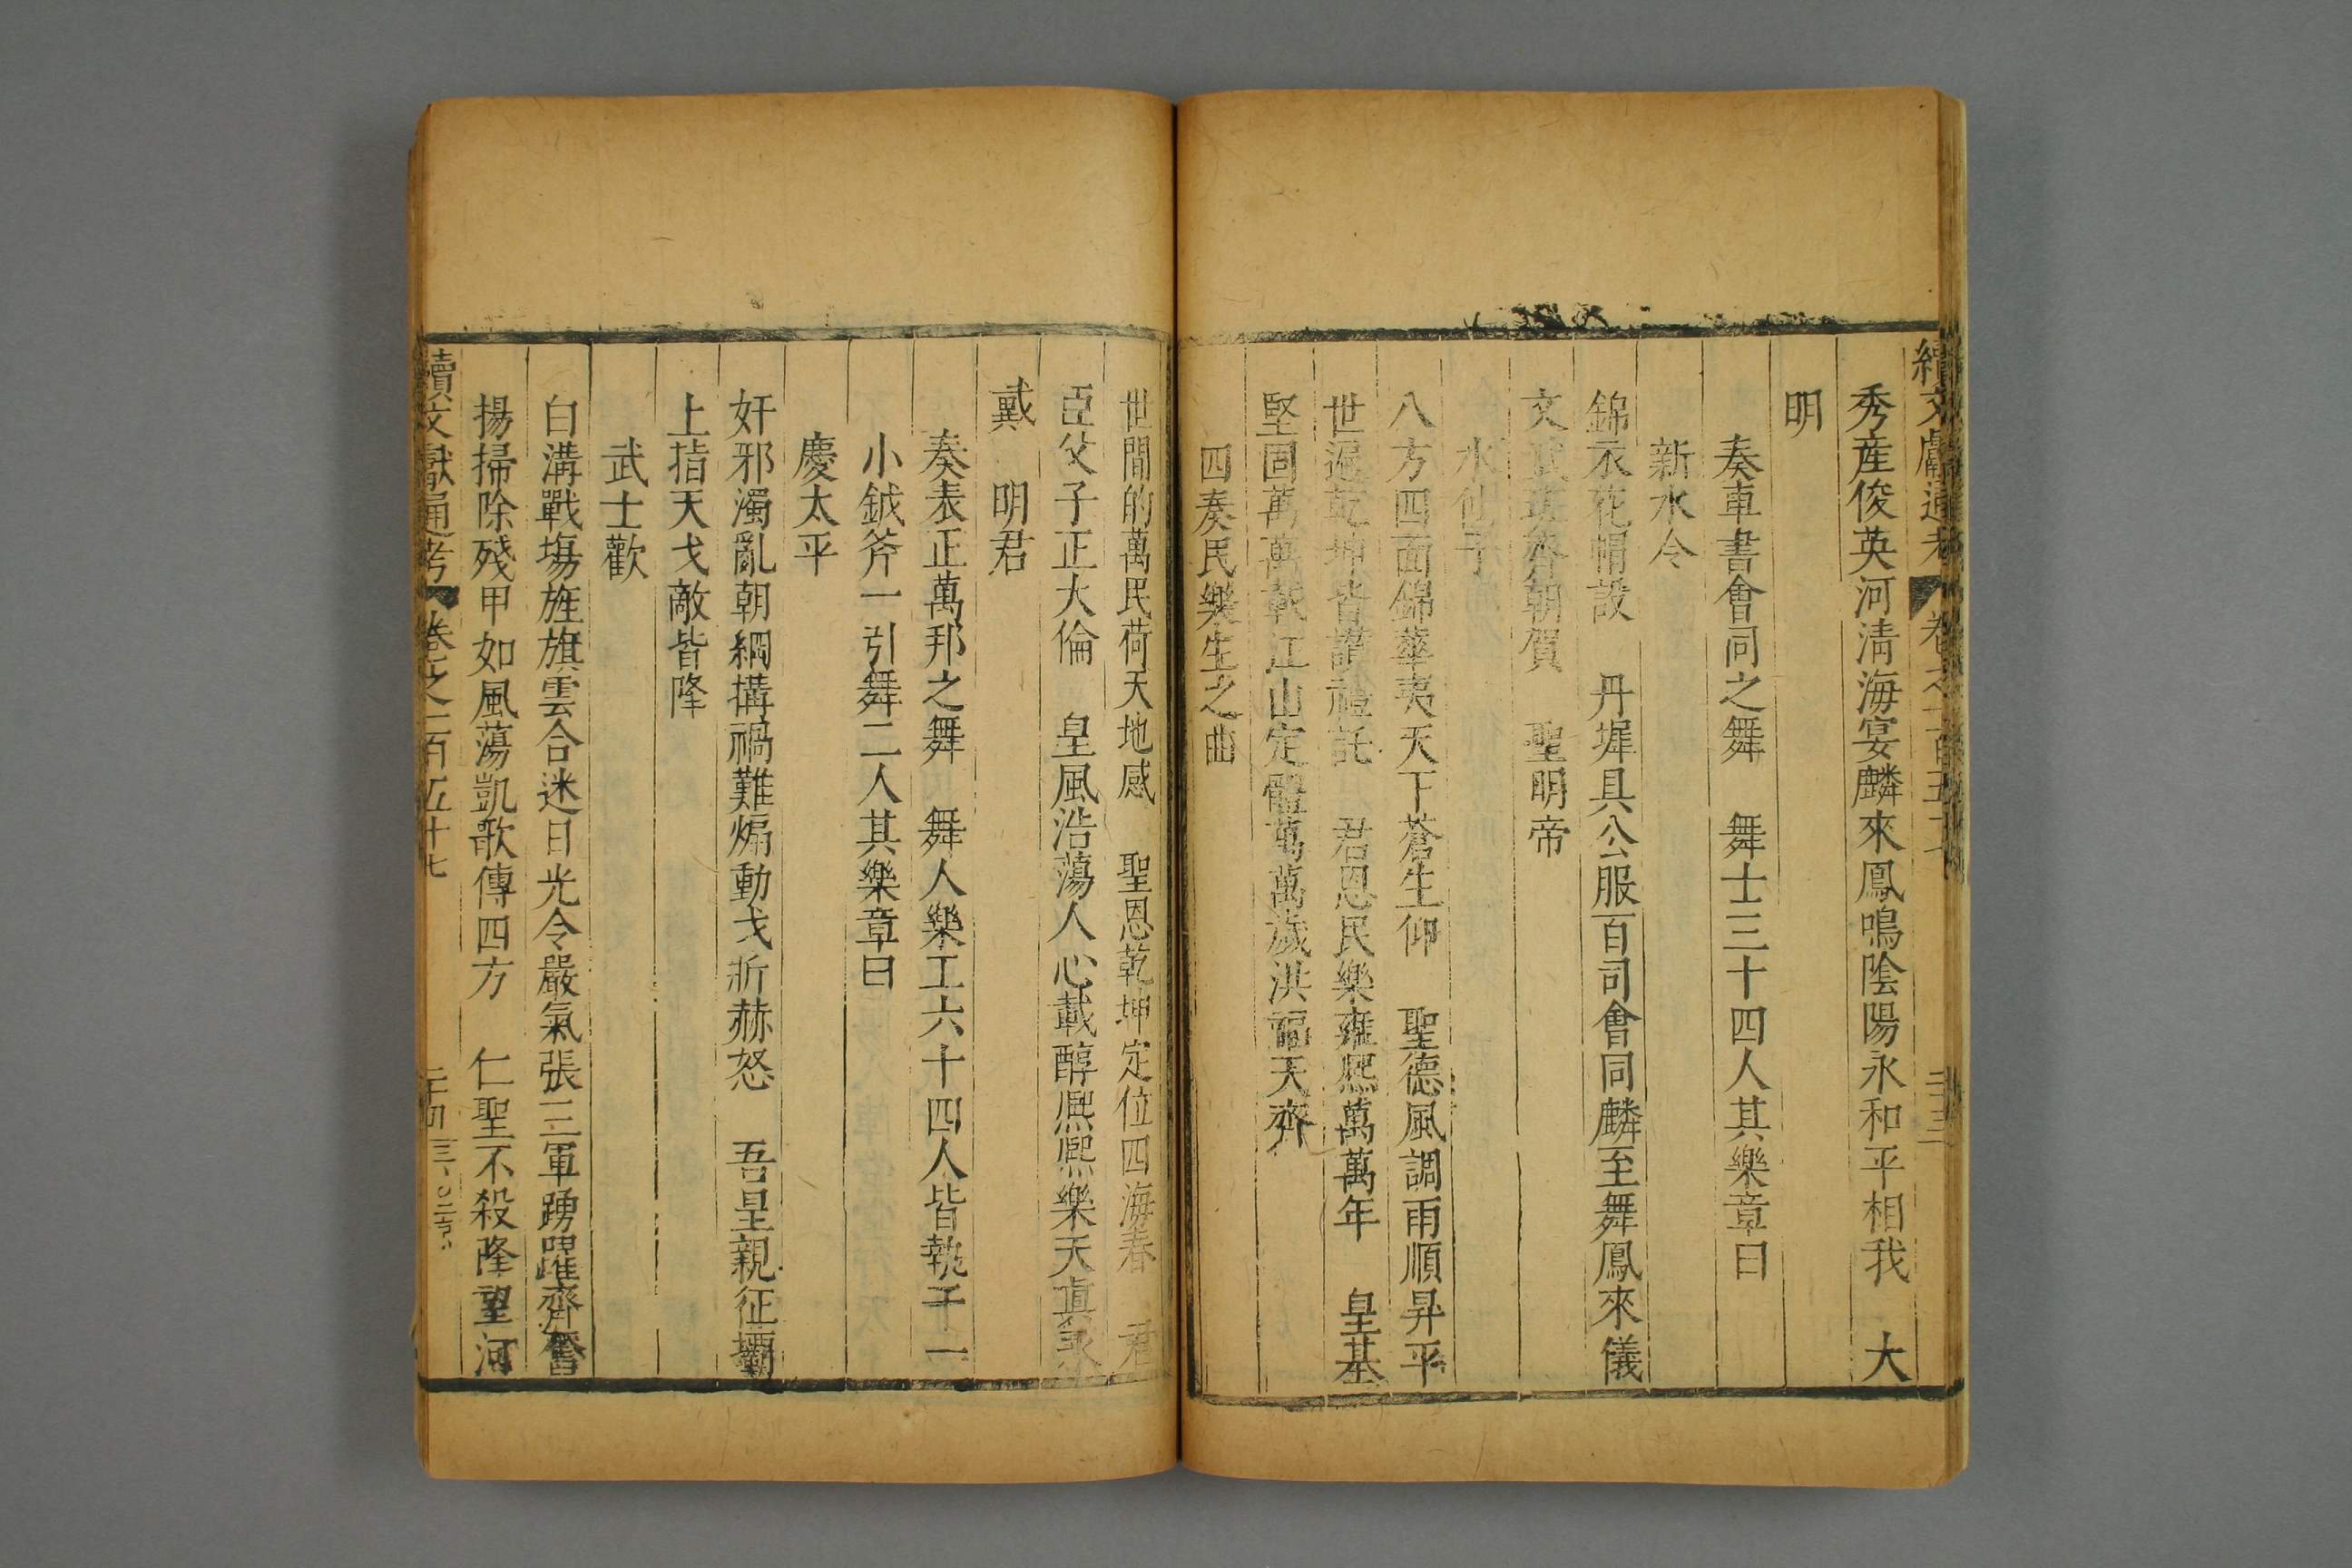 續文獻通考 卷之一百五十七 二十三
秀產俊英河清海宴麟來鳳鳴陰陽永和平相我 大
明
奏車書會同之舞 舞士三十四人其樂章曰
新水令
錦衣花帽設 丹墀具公服百司會同麟至舞鳳來儀
文武班齊朝賀 聖明帝
水仙子
八方四面錦華夷天下蒼生仰 聖德風調雨順昇平
世遍乾坤皆讚禮託 君恩民樂雍熈萬萬年 皇基
堅固萬萬載江山定體萬萬歲洪福天齊
四奏民樂生之曲
世間的萬民荷天地感 聖恩乾坤定位四海春 君
臣父子正大倫 皇風浩蕩人心載醇熈熈樂天眞永
戴 明君
奏表正萬邦之舞 舞人樂工六十四人皆執干一
小鉞斧一引舞二人其樂章曰
慶太平
奸邪濁亂朝綱搆禍難煽動戈斨赫怒 吾皇親征灞
上指天戈敵皆降
武士歡
白溝戰塲旌旗雲合迷日光令嚴氣張三軍踴躍齊奮
揚掃除殘甲如風蕩凱歌傳四方 仁聖不殺降望河
續文獻通考 卷之一百五十七 二十四